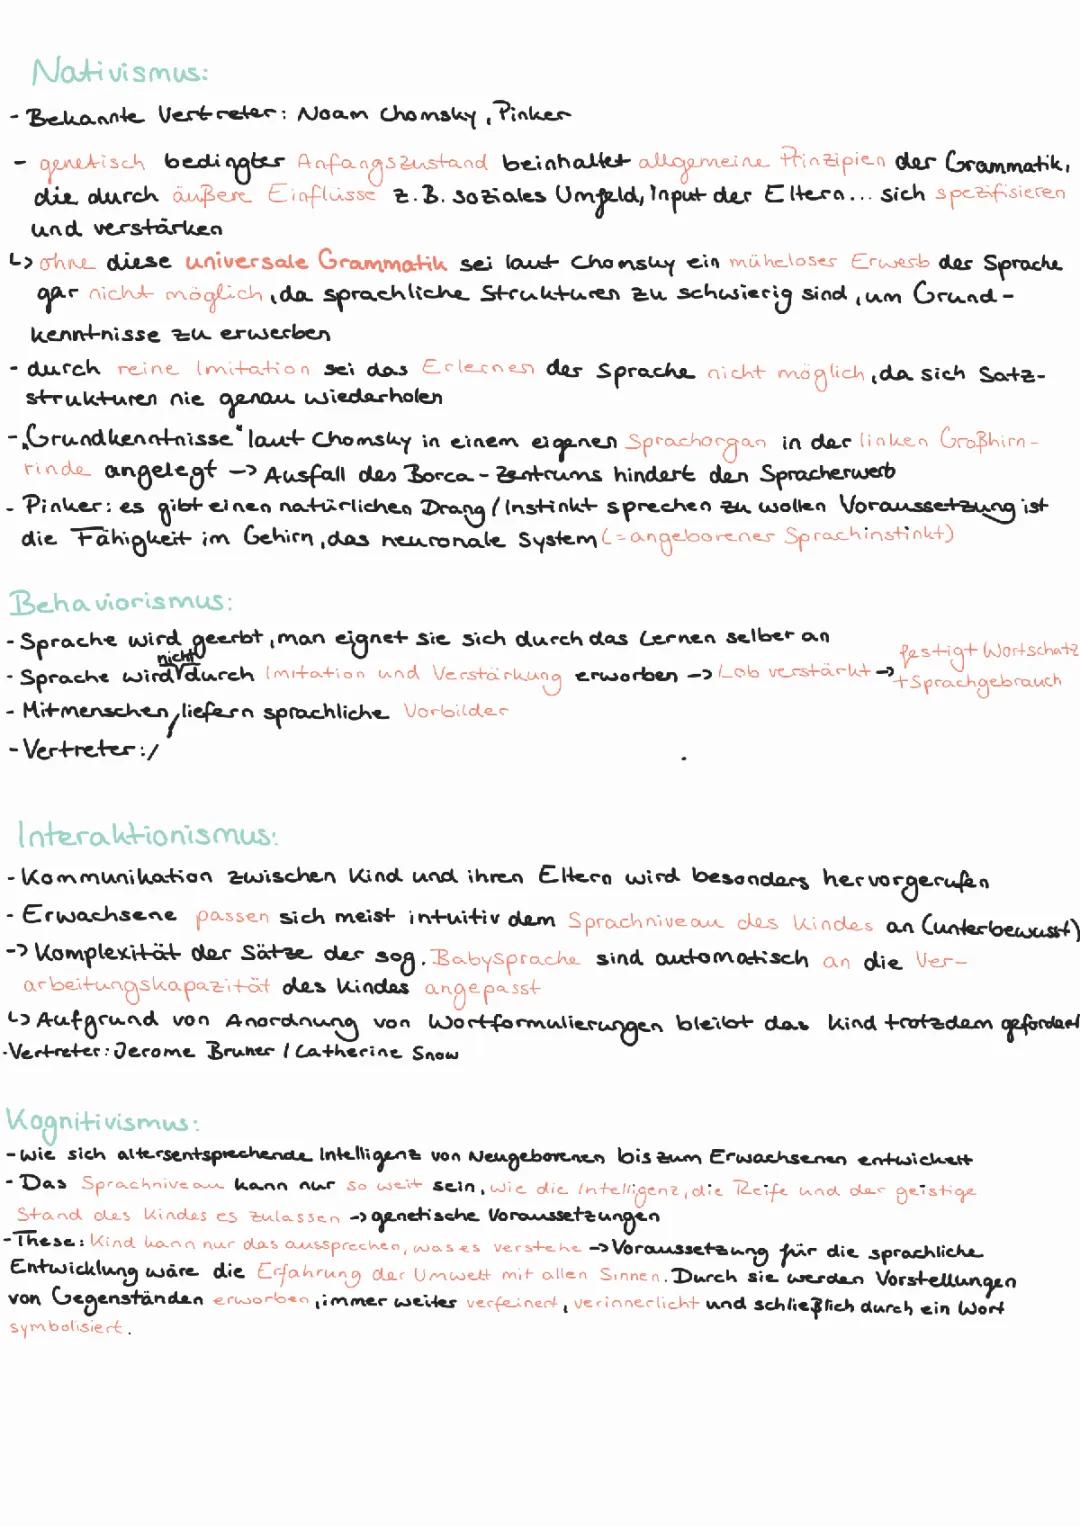 Nativismus:
- Bekannte Vertreter: Noam Chomsky, Pinker
- genetisch bedingter Anfangszustand beinhaltet allgemeine Prinzipien der Grammatik,
die durch äußere Einflüsse z.B. soziales Umfeld, Input der Eltern... sich spezifisieren
und verstärken
↳ ohne diese universale Grammatik sei laut Chomsky ein müheloses Erwerb der Sprache
gar nicht möglich, da sprachliche Strukturen zu schwierig sind, um Grund-
kenntnisse zu erwerben
- durch reine Imitation sei das Erlernen der Sprache nicht möglich, da sich Satz-
strukturen nie genau wiederholen
- „Grundkenntnisse" laut Chomsky in einem eigenen Sprachorgan in der linken Großhirn-
rinde angelegt -> Ausfall des Borca-Zentrums hindert den Spracherwerb
- Pinker: es gibt einen natürlichen Drang / Instinkt sprechen zu wollen Voraussetzung ist
die Fähigkeit im Gehirn, das neuronale System (= angeborener Sprachinstinkt)
Behaviorismus:
- Sprache wird geerbt, man eignet sie sich durch das Lernen selber an
nicht
- Sprache wird durch Imitation und Verstärkung erworben -> Lob verstärkt -> festigt Wortschatz
+ Sprachgebrauch
- Mitmenschen liefern sprachliche Vorbilder
- Vertreter: /
Interaktionismus:
- Kommunikation zwischen Kind und ihren Eltern wird besonders hervorgerufen
- Erwachsene passen sich meist intuitiv dem Sprachniveau des Kindes an (unterbewusst)
-> Komplexität der Sätze der sog. Babysprache sind automatisch an die Ver-
arbeitungskapazität des Kindes angepasst
↳ Aufgrund von Anordnung von Wortformulierungen bleibt das Kind trotzdem gefordert
- Vertreter: Jerome Bruner / Catherine Snow
Kognitivismus:
- wie sich altersentsprechende Intelligenz von Neugeborenen bis zum Erwachsenen entwickelt
- Das Sprachniveau kann nur so weit sein, wie die Intelligenz, die Reife und der geistige
Stand des Kindes es zulassen -> genetische Voraussetzungen
- These: Kind kann nur das aussprechen, was es verstehe -> Voraussetzung für die sprachliche
Entwicklung wäre die Erfahrung der Umwelt mit allen Sinnen. Durch sie werden Vorstellungen
von Gegenständen erworben, immer weiter verfeinert, verinnerlicht und schließlich durch ein Wort
symbolisiert.